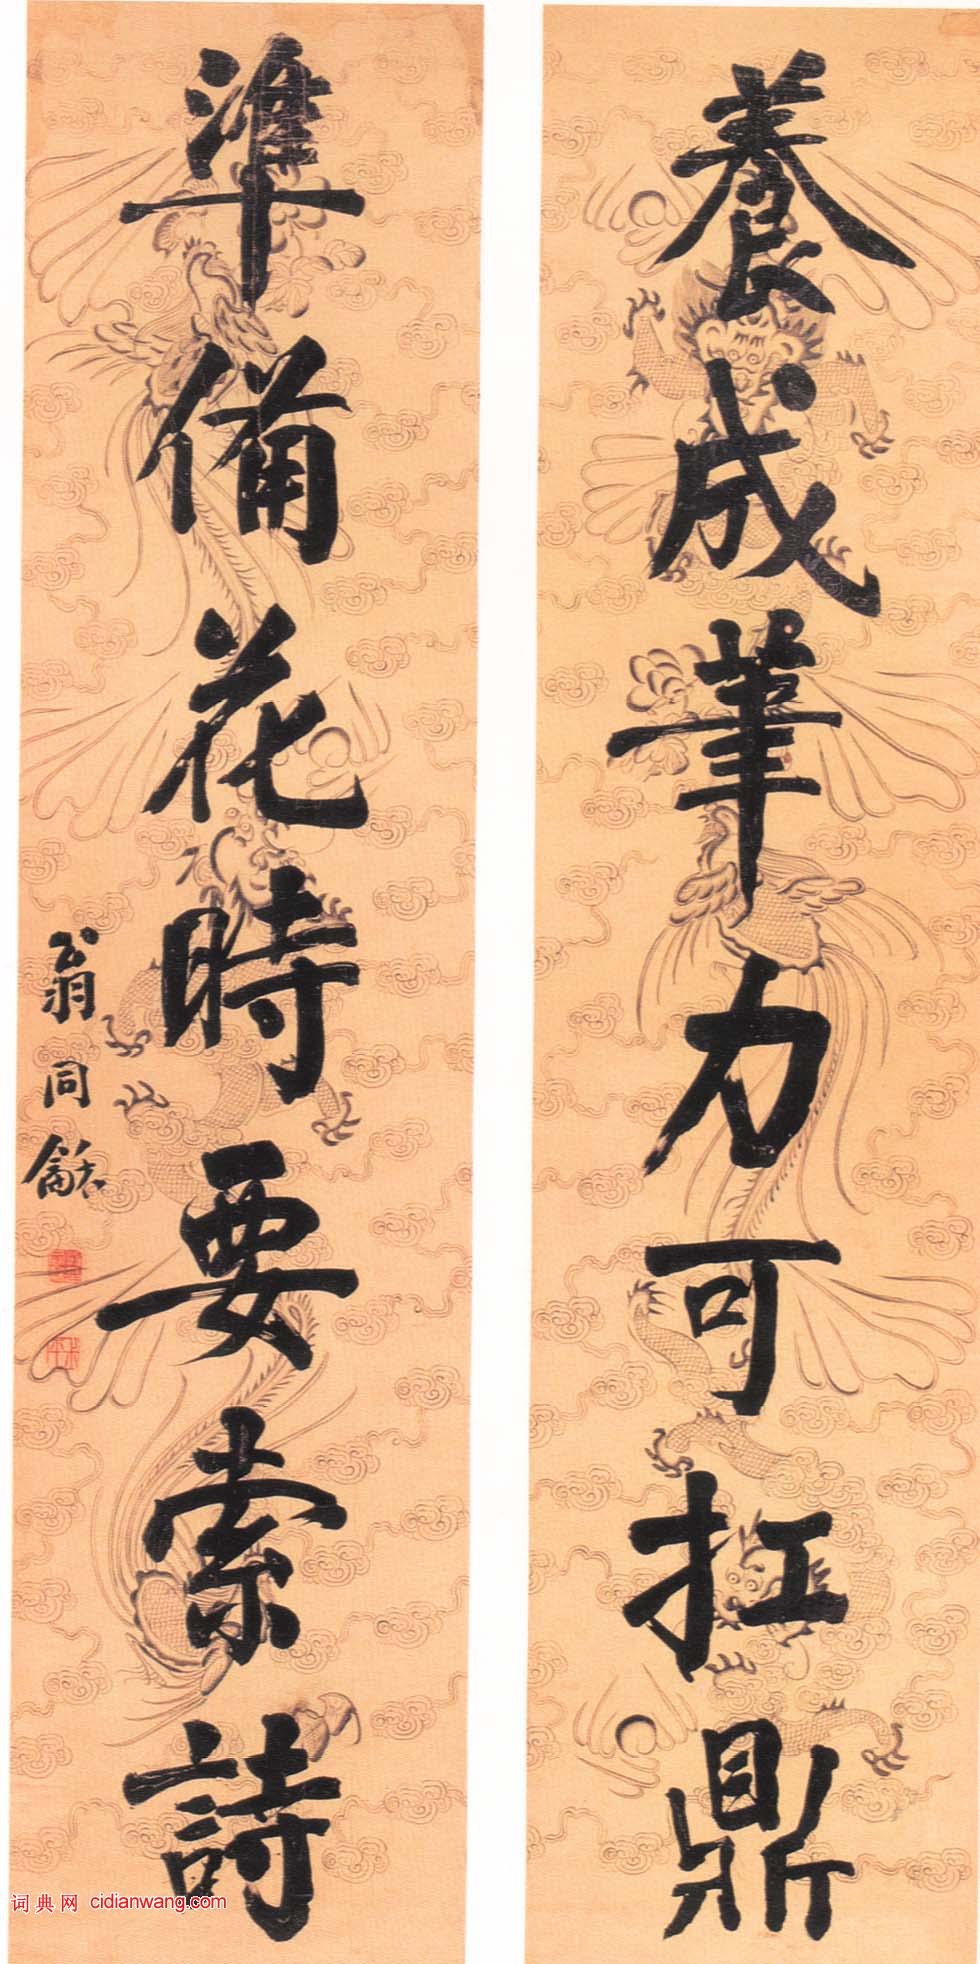 養成筆力可扛鼎
準備花時要索詩
翁同龢
词典网 cidianwang.com